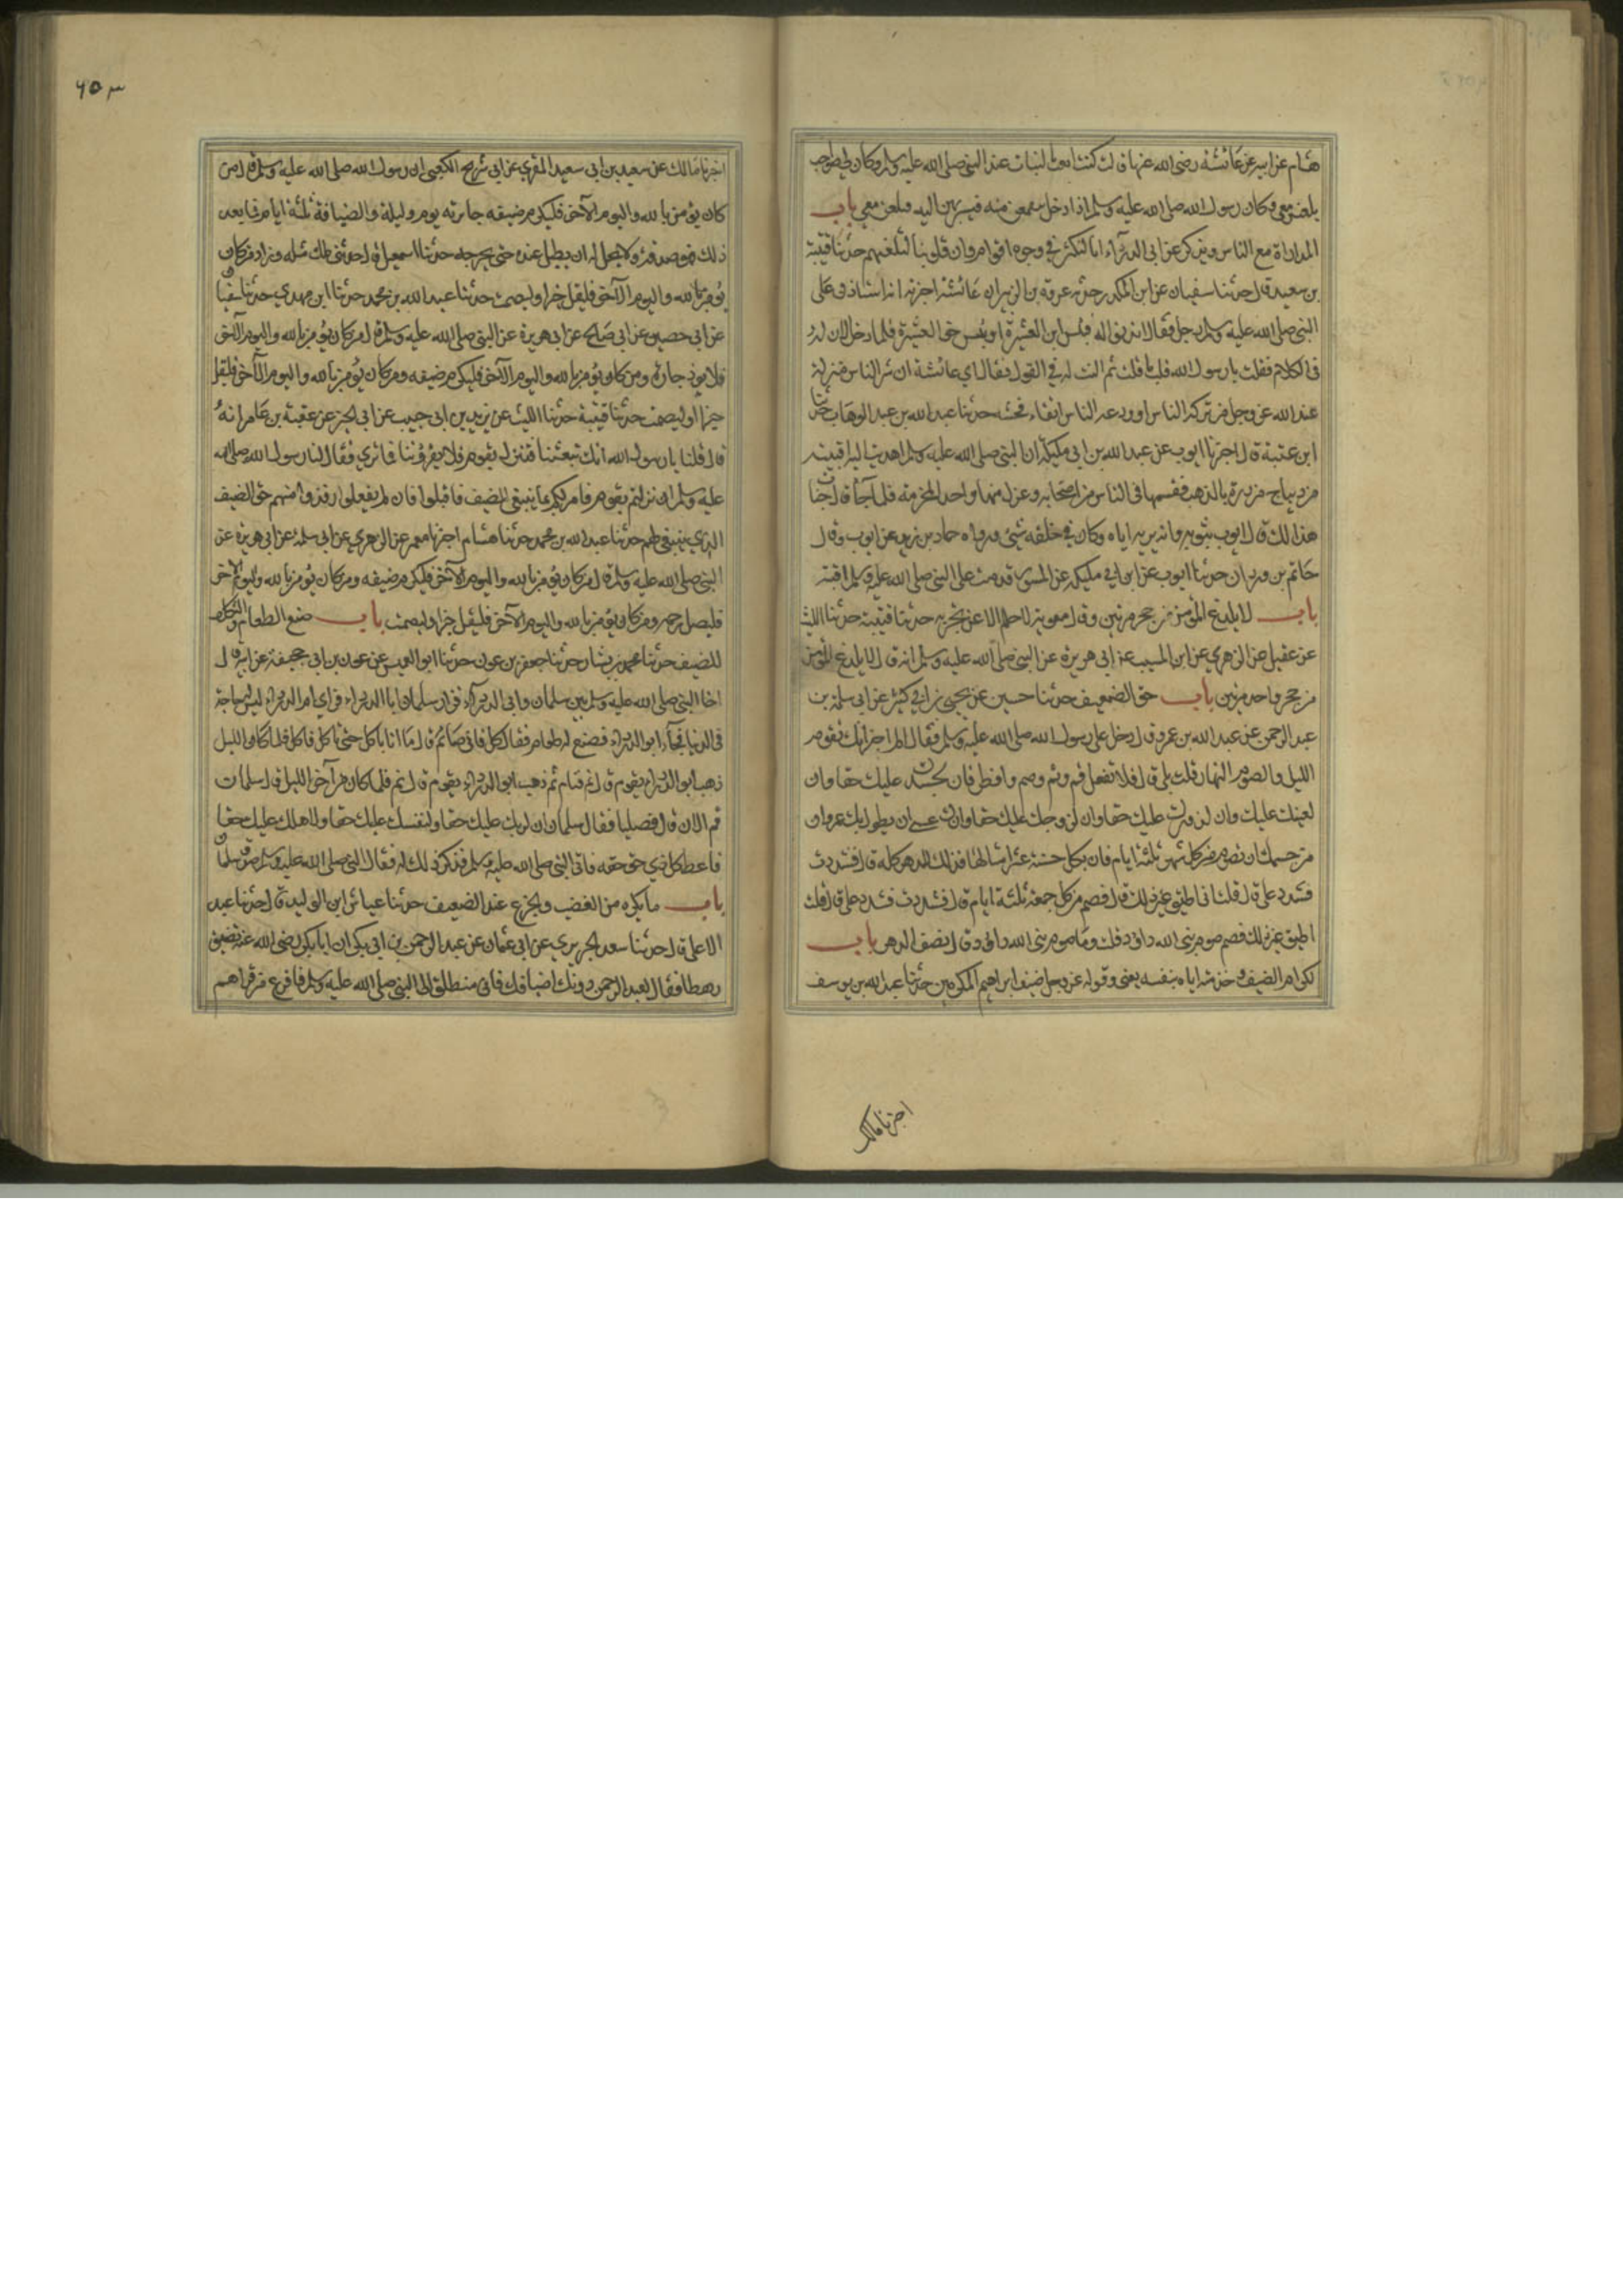 هشام عن ابيه عن عائشة رضى الله عنها قالت كنت العب بالبنات عند النبى صلى الله عليه وسلم وكان لى صواحب
يلعبن معى وكان رسول الله صلى الله عليه وسلم اذا دخل يتقمعن منه فيسربهن اليه فيلعبن معى باب
المداراة مع الناس ويذكر عن ابى الدرداء انا لنكشر فى وجوه اقوام وان قلوبنا لتلعنهم حدثنا قتيبة
بن سعيد قال حدثنا سفيان عن ابن المنكدر حدثه عروة بن الزبير ان عائشة اخبرته انه استاذن على
النبى صلى الله عليه وسلم رجل فقال ائذنوا له فبئس ابن العشيرة او بئس اخو العشيرة فلما دخل الان له
فى الكلام فقلت يا رسول الله قلت ما قلت ثم النت له فى القول فقال اى عائشة ان شر الناس منزلة
عند الله عز وجل من تركه الناس او ودعه الناس اتقاء فحشه حدثنا عبد الله بن عبد الوهاب حدثنا
ابن عتبة قال اخبرنا ايوب عن عبد الله بن ابى مليكة ان النبى صلى الله عليه وسلم اهديت اليه اقبية
من ديباج مزررة بالذهب فقسمها فى الناس من اصحابه وعزل منها واحدا لمخرمة فلما جاء قال خبات
هذا لك قال ايوب بثوبه وانه يريه اياه وكان فى خلقه شئ ورواه حماد بن زيد عن ايوب وقال
حاتم بن وردان حدثنا ايوب عن ابن ابى مليكة عن المسور قدمت على النبى صلى الله عليه وسلم اقبية
باب لا يلدغ المؤمن من جحر مرتين وقال معوية لا حلم الا عن تجربة حدثنا قتيبة حدثنا الليث
عن عقيل عن الزهرى عن ابن المسيب عن ابى هريرة عن النبى صلى الله عليه وسلم انه قال لا يلدغ المؤمن
من جحر واحد مرتين باب حق الضعيف حدثنا حسين عن يحيى بن ابى كثير عن ابى سلمة بن
عبد الرحمن عن عبد الله بن عمرو قال دخل على رسول الله صلى الله عليه وسلم فقال الم اخبر انك تقوم
الليل والصوم النهار قلت بلى قال فلا تفعل قم ونم وصم وافطر فان لجسدك عليك حقا وان
لعينك عليك وان لزورك عليك حقا وان لزوجك عليك حقا وانك عسى ان يطول بك عمر وان
من حسبك ان تصوم من كل شهر ثلثة ايام فان بكل حسنة عشر امثالها فذلك الدهر كله قال فشددت
فشدد على قال قلت انى اطيق غير ذلك قال فصم من كل جمعة ثلثة ايام قال فشددت فشدد على قال قلت
اطيق غير ذلك فصم صوم نبى الله داود قلت وما صوم نبى الله داود قال نصف الدهر باب
اكرام الضيف وخدمته اياه بنفسه يعنى وقوله عز وجل ضيف ابراهيم المكرمين حدثنا عبد الله بن يوسف
اخبرنا مالك
٦٥٣
اخبرنا مالك عن سعيد بن ابى سعيد المقبرى عن ابى شريح الكعبى ان رسول الله صلى الله عليه وسلم قال من
كان يؤمن بالله واليوم الآخر فليكرم ضيفه جائزته يوم وليلة والضيافة ثلثة ايام فما بعد
ذلك فهو صدقة ولا يحل له ان يطيل عنده حتى يحرجه حدثنا اسمعيل قال حدثنى ملك مثله وزاد من كان
يؤمن بالله واليوم الآخر فليقل خيرا او ليصمت حدثنا عبد الله بن محمد حدثنا ابن مهدى حدثنا سفيان
عن ابى حصين عن ابى صالح عن ابى هريرة عن النبى صلى الله عليه وسلم قال من كان يؤمن بالله واليوم الآخر
فلا يوذ جاره ومن كان يؤمن بالله واليوم الآخر فليكرم ضيفه ومن كان يؤمن بالله واليوم الآخر فليقل
خيرا او ليصمت حدثنا قتيبة حدثنا الليث عن يزيد بن ابى حبيب عن ابى الخير عن عقبة بن عامر انه
قال قلنا يا رسول الله انك تبعثنا فننزل بقوم فلا يقروننا فما ترى فقال لنا رسول الله صلى الله
عليه وسلم ان نزلتم بقوم فامر لكم بما ينبغى للضيف فاقبلوا فان لم يفعلوا فخذوا منهم حق الضيف
الذى ينبغى لهم حدثنا عبد الله بن محمد حدثنا هشام اخبرنا معمر عن الزهرى عن ابى سلمة عن ابى هريرة عن
النبى صلى الله عليه وسلم قال من كان يؤمن بالله واليوم الآخر فليكرم ضيفه ومن كان يؤمن بالله واليوم الآخر
فليصل رحمه ومن كان يؤمن بالله واليوم الآخر فليقل خيرا او ليصمت باب صنع الطعام والتكلف
للضيف حدثنا محمد بن بشار حدثنا جعفر بن عون حدثنا ابو العميس عن عون بن ابى جحيفة عن ابيه قال
اخا النبى صلى الله عليه وسلم بين سلمان وابى الدرداء فزار سلمان ابا الدرداء فراى ام الدرداء ليس حاجة
فى الدنيا فجاء ابو الدرداء فصنع له طعام فقال كل فانى صائم قال ما انا باكل حتى تاكل فاكل فلما كان الليل
ذهب ابو الدرداء يقوم قال نم فنام ثم ذهب ابو الدرداء يقوم قال نم فلما كان من آخر الليل قال سلمان
قم الان قال فصليا فقال سلمان ان لربك عليك حقا ولنفسك عليك حقا ولاهلك عليك حقا
فاعط كل ذى حق حقه فاتى النبى صلى الله عليه وسلم فذكر ذلك له فقال النبى صلى الله عليه وسلم صدق سلمان
باب ما يكره من الغضب والجزع عند الضيف حدثنا عياش ابن الوليد قال حدثنا عبد
الاعلى قال حدثنا سعيد الجريرى عن ابى عثمان عن عبد الرحمن بن ابى بكر ان ابا بكر رضى الله عنه تضيف
رهطا فقال لعبد الرحمن دونك اضيافك فانى منطلق الى النبى صلى الله عليه وسلم فافرغ من قراهم